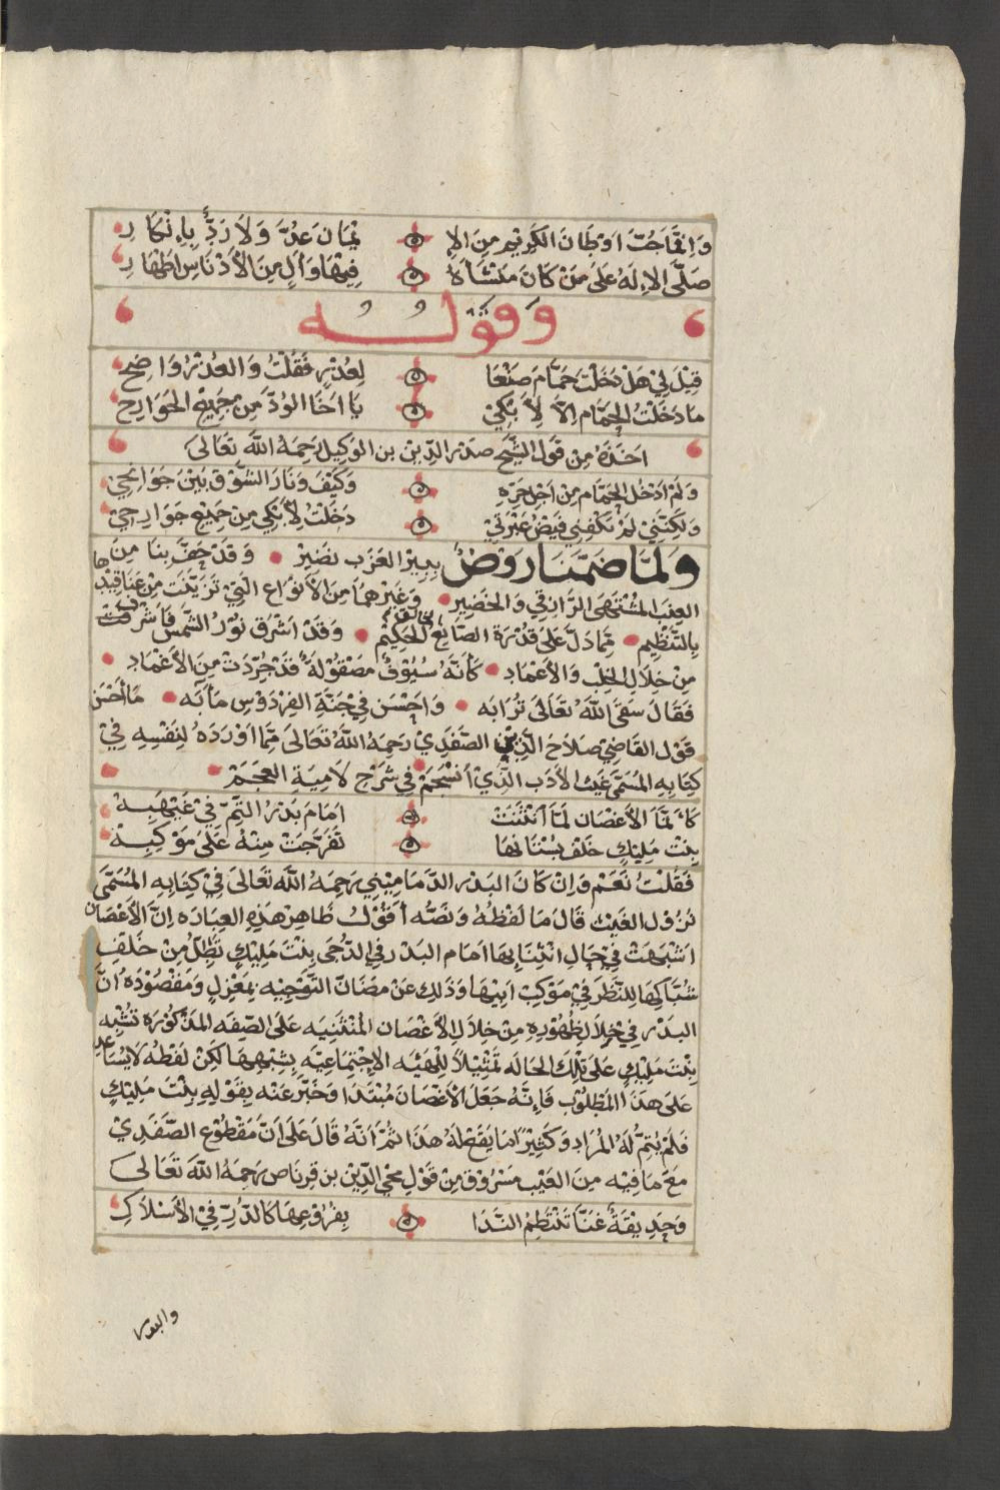 وَاِنَّمَا حُبُّ اَوْطَانِ الكَرِيْمِ مِنَ الاِ يْمَانِ عَدّ وَلاَ رَدٌّ بِاِنْكَارِ
صَلَّى الاِلَهُ عَلَى مَنْ كَانَ مَنْشَأهُ فِيْهَا وَالٍ مِنَ الأَدْنَاسِ اَطْهَارِ
وَقَوْلُهُ
قِيْلَ لِيْ هَلْ دَخَلْتَ حَمَّامَ صَنْعَا لِعُذْرٍ فَقُلْتُ وَالعُذْرُ وَاضِحْ
مَا دَخَلْتُ الحَمَّامَ اِلاَّ لِأَبْكِيْ يَا اَخَا الوُدِّ مِنْ جَمِيْعِ الجَوَارِحْ
اَخَذَهُ مِنْ قَوْلِ الشَّيْخ صَدْرِ الدِّيْنِ بن الوَكِيْل رَحِمَهُ اللّٰهُ تَعَالَى
وَلَمْ اَدْخُلِ الحَمَّامَ مِنْ اَجْلِ حَرِّهِ وَكَيْفَ وَنَارُ الشَّوْقِ بَيْنَ جَوَانِحِيْ
وَلَكِنَّنِيْ لَمْ تَكْفِنِيْ فَيْضُ عَبْرَتِيْ دَخَلْتُ لِأَبْكِيْ مِنْ جَمِيْعِ جَوَارِحِيْ
وَلَمَّا ضَمَّنَا رَوْضٌ بِبِيْرِ العَزَبِ نَضِيْرْ وَقَدْ حَفَّ بِنَا مِنْ
العِنَبِ المُشْتَهَى الرَّازِقِي وَالحَضِيْرِ وَغَيْرِهِمَا مِنَ الأَنْوَاعِ الَّتِيْ تَزَيَّنَتْ مِنْ عَنَاقِيْدِهَا
بِالتَّنْظِيْمِ مِمَّا دَلَّ عَلَى قُدْرَةِ الصَّانِعِ الحَكِيْمِ وَقَدْ اَشْرَقَ نُوْرُ الشَّمْسِ فَأَشْرَقَتْ
مِنْ خِلاَلِ وَالأَعْمَادِ كَأَنَّهُ سُيُوْفٌ مَصْقُوْلَةٌ قَدْ جُرِّدَتْ مِنَ الأَغْمَادِ
فَقَالَ سَقَى اللّٰهُ تَعَالَى تُرَابَه وَاَحْسَنَ فِيْ جَنَّةِ الفِرْدَوْسِ مَأبَه مَا اَحْسَنَ
قَوْلَ القَاضِيْ صَلاَحِ الدِّيْنِ الصَّفَدِيْ رَحِمَهُ اللّٰهُ تَعَالَى مِمَّا اَوْرَدَهُ لِنَفْسِهِ فِيْ
كِتَابِهِ المُسَمَّى غَيْث الأَدَبِ الَّذِيْ اَنْسَجَمْ فِي شَرْحِ لاَمِيَةِ العَجَمْ
كَأَنَّمَا الأَغْصَانُ لَمَّا انْثَنَتْ اَمَامَ بَدْرِ التِّمِّ فِيْ غَيْهَبِهْ
بِنْتُ مَلِيْكٍ خَلْفَ بُسْتَانِهَا تَفَرَّجَتْ مِنْهُ عَلَى مَوْكِبِهْ
فَقُلْتُ نَعَمْ وَاِنْ كَانَ البَدْر الدَّمَامِيْنِي رَحِمَهُ اللّٰهُ تَعَالَى فِيْ كِتَابِهِ المُسَمَّى
نُزُوْلِ الغَيْث قَالَ مَا لَفْظُهُ وَنَصُّه اَقُوْلُ ظَاهِرُ هَذِهِ العِبَارَه اِنَّ الأَغْصَان
اَشْبَهَتْ فِيْ حَالِ انْثِنَائِهَا اَمَامَ البَدْرِ فِي الدُّجَى بِنْتَ مَلِيْكٍ تُطِلُّ مِنْ خَلْفِ
شُبَّاكِهَا لِلنَّظَرِ فِيْ مَوْكِبِ اَبِيْهَا وَذَلِكَ عَنْ مَضَانِّ التَّوْجِيْهِ بِمَعْزِلٍ وَمَقْصُوْدُهُ اَنَّ
البَدْرَ فِيْ خِلاَلِ ظُهُوْرِهِ مِنْ خِلاَلِ الأَغْصَان المُنْثَنِيَه عَلَى الصِّفَه المَذْكُوْرَه تُشْبِه
بِنْتَ مَلِيْكٍ عَلَى تِلْكَ الحَالَه تَمْثِيْلاً لِلْهَيْئَه الاِجْتِمَاعِيَّه بِشِبْهِهَا لَكِنَّ لَفْظَهُ لاَيُسَاعِدِ
عَلَى هَذَا المَطْلُوْبِ فَاِنَّهُ جَعَلَ الأَغْصَانَ مُبْتَدَا وَخَبَّرَ عَنْهُ بِقَوْلِهِ بِنْتُ مَلِيْكٍ
فَلَمْ يَتِمَّ لَهُ المُرَاد وَكَثِيْرًا مَا يَقَعُ لَهُ هَذَا ثُمَّ اَنَّهُ قَالَ عَلَى اَنَّ مَقْطُوْعَ الصَّفَدِيْ
مَعَ مَا فِيْهِ مِنَ العَيْبِ مَسْرُوْق مِنْ قَوْلِ مُحْيِ الدِّيْنِ بن قرنَاص رَحِمَهُ اللّٰهُ تَعَالَى
وَحَدِيْقَةٌ غَنَّا تَنْتَظِمُ النَّدَا بِفُرُوْعِهَا كَالدُّرِّ فِيْ الأَسْلاَكِ
والبدر